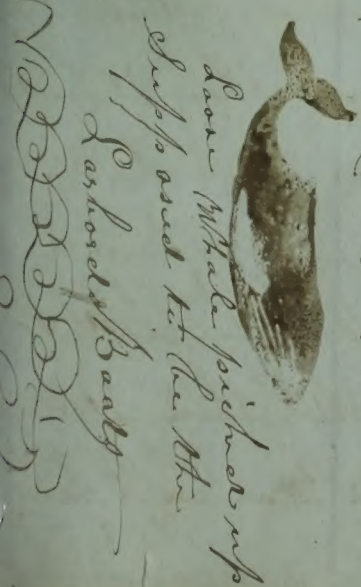 Loose Whale picked up
Supposed to be the
Larboard Boats